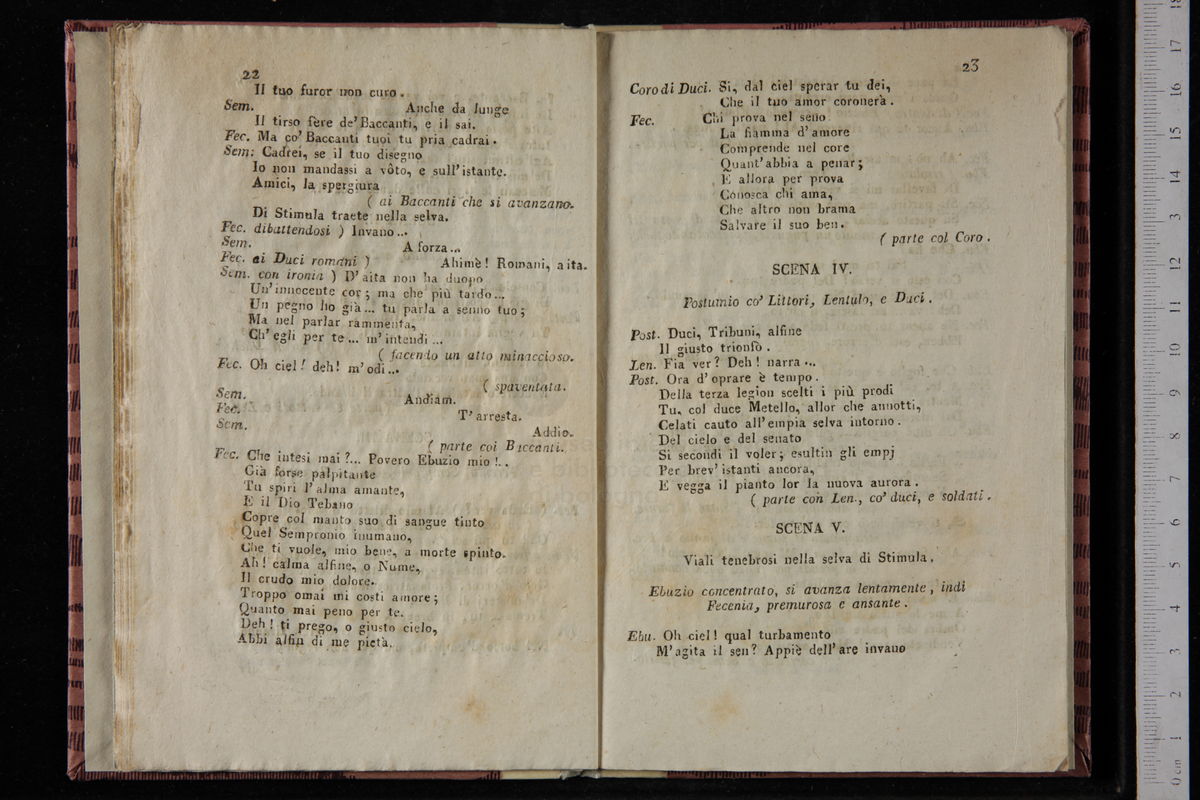 22
Il tuo furor non curo.
Sem. Anche da lunge
Il tirso fère de' Baccanti, e il sai.
Fec. Ma co' Baccanti tuoi tu pria cadrai.
Sem: Cadrei, se il tuo disegno
Io non mandassi a vôto, e sull'istante.
Amici, la spergiura
( ai Baccanti che si avanzano.
Di Stimula traete nella selva.
Fec. dibattendosi ) Invano...
Sem. A forza...
Fec. ai Duci romani ) Ahimè! Romani, aita.
Sem. con ironia ) D'aita non ha duopo
Un'innocente cor; ma che più tardo...
Un pegno ho già... tu parla a senno tuo;
Ma nel parlar rammenta,
Ch'egli per te... m'intendi...
( facendo un atto minaccioso.
Fec. Oh ciel! deh! m'odi...
( spaventata.
Sem. Andiam.
Fec. T'arresta.
Sem. Addio.
( parte coi Baccanti.
Fec. Che intesi mai?... Povero Ebuzio mio!..
Già forse palpitante
Tu spiri l'alma amante,
E il Dio Tebano
Copre col manto suo di sangue tinto
Quel Sempronio inumano,
Che ti vuole, mio bene, a morte spinto.
Ah! calma alfine, o Nume,
Il crudo mio dolore.
Troppo omai mi costi amore;
Quanto mai peno per te.
Deh! ti prego, o giusto cielo,
Abbi alfin di me pietà.
23
Coro di Duci. Si, dal ciel sperar tu dei,
Che il tuo amor coronerà.
Fec. Chi prova nel seno
La fiamma d'amore
Comprende nel core
Quant'abbia a penar;
E allora per prova
Conosca chi ama,
Che altro non brama
Salvare il suo ben.
( parte col Coro.
SCENA IV.
Postumio co' Littori, Lentulo, e Duci.
Post. Duci, Tribuni, alfine
Il giusto trionfò.
Len. Fia ver? Deh! narra...
Post. Ora d'oprare è tempo.
Della terza legion scelti i più prodi
Tu, col duce Metello, allor che annotti,
Celati cauto all'empia selva intorno.
Del cielo e del senato
Si secondi il voler; esultin gli empj
Per brev'istanti ancora,
E vegga il pianto lor la nuova aurora.
( parte con Len., co' duci, e soldati.
SCENA V.
Viali tenebrosi nella selva di Stimula.
Ebuzio concentrato, si avanza lentamente, indi
Fecenia, premurosa e ansante.
Ebu. Oh ciel! qual turbamento
M'agita il sen? Appiè dell'are invano